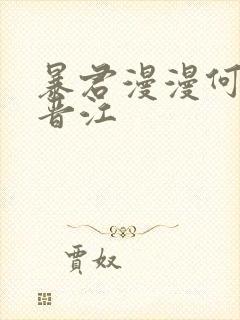 暴君漫漫何
晋江
贾奴